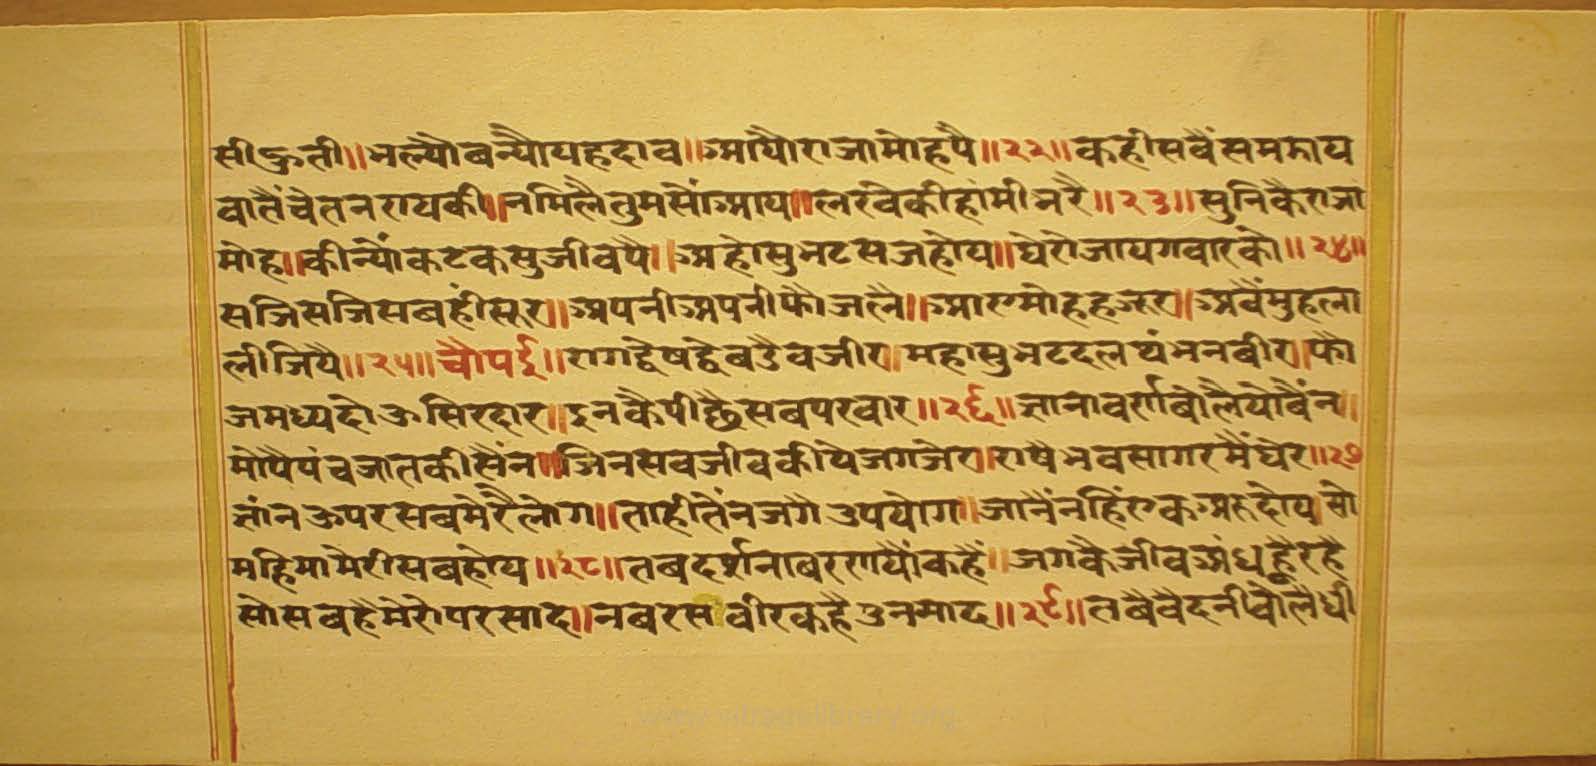 सीऊती॥भल्यौबन्यौयहदाव॥आयौराजामोहपै॥२२॥कहीसबैंसमझाय
वातैंचेतनरायकी॥नमिलैतुमसोंआय॥लरवेकीहांमीभरै॥२३॥सुनिकैराजा
मोह॥कीन्योंकटकसुजीवपै॥अहोसुभटसजहोय॥घेरोजायगवारंको॥२४॥
सजिसजिसबहींसूर॥अपनीअपनीफौजलै॥आएमोहहजूर॥अबैंमुहला
लीजियै॥२५॥चौपई॥रागद्वेषद्वेबडेवजीर॥महासुभटदलथंभनबीर॥फौ
जमध्यदोऊसिरदार॥इनकैपीछैसबपरवार॥२६॥ज्ञानावर्णीबोलैयोबैंन॥
मोपैपंचजातकीसैंन॥जिनसबजीवकीयेजगजेर॥राषेभवसागरमैंघेर॥२७
तांनऊपरसबमेरैलोग॥ताहीतैंनजगैउपयोग॥जानैंनहिंएकअरुदोय॥सो
महिमामेरीसबहोय॥२८॥तबदर्शनाबरणयौंकहैं॥जगकैजीवअंधह्वैरहै
सोसबहैमेरोपरसाद॥नबरसवीरकहैउनमाद॥२९॥तबैवैदनीबोलैधी